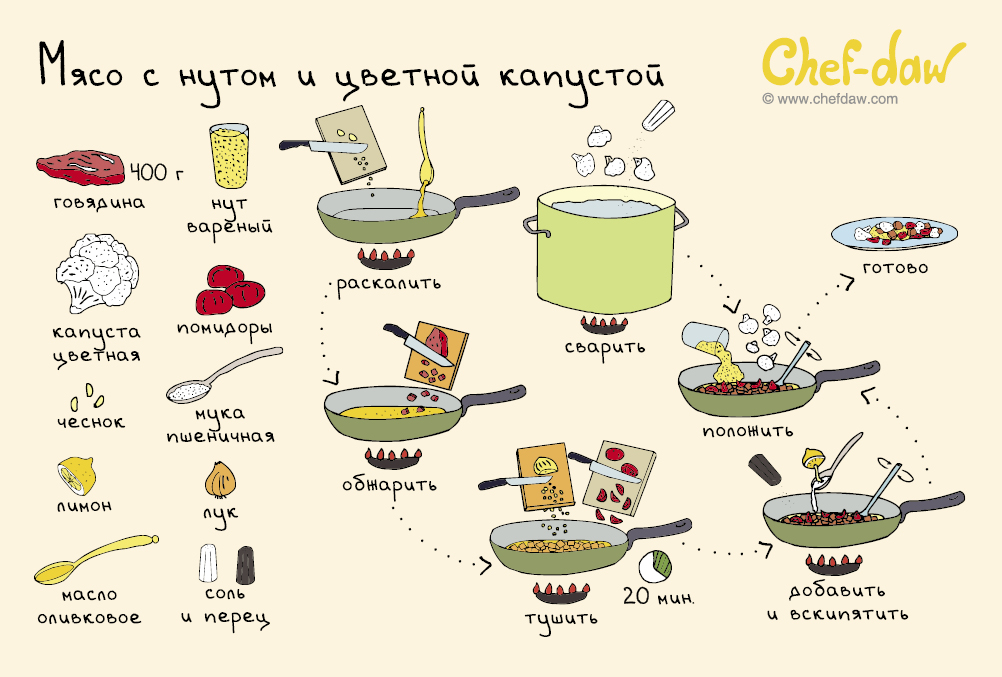 Мясо с нутом и цветной капустой
Chef-daw
© www.chefdaw.com
400 г
говядина
нут
вареный
капуста
цветная
помидоры
чеснок
мука
пшеничная
лимон
лук
масло
оливковое
соль
и перец
раскалить
обжарить
тушить
20 мин.
сварить
добавить
и вскипятить
положить
готово